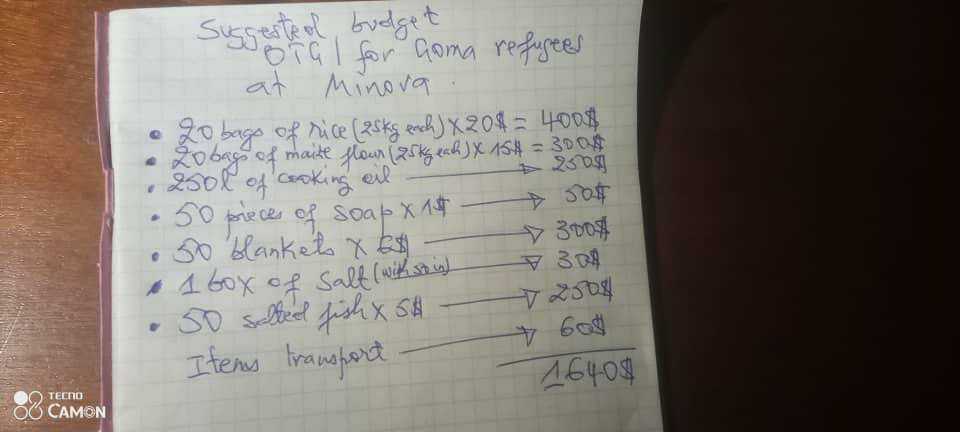 Suggested budget
OTG1 for Goma refugees
at Minova.
• 20 bags of rice (25kg each) × 20$ = 400$
• 20 bags of maize flour (25kg each) × 15$ = 300$
• 250l of cooking oil → 250$
• 50 pieces of soap × 1$ → 50$
• 50 blankets × 6$ → 300$
• 1 box of salt (with 50 in) → 30$
• 50 salted fish × 5$ → 250$
Items transport → 60$
1640$
TECNO
CAMON